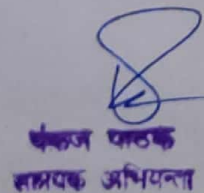 पंकज पाठक
सहायक अभियन्ता